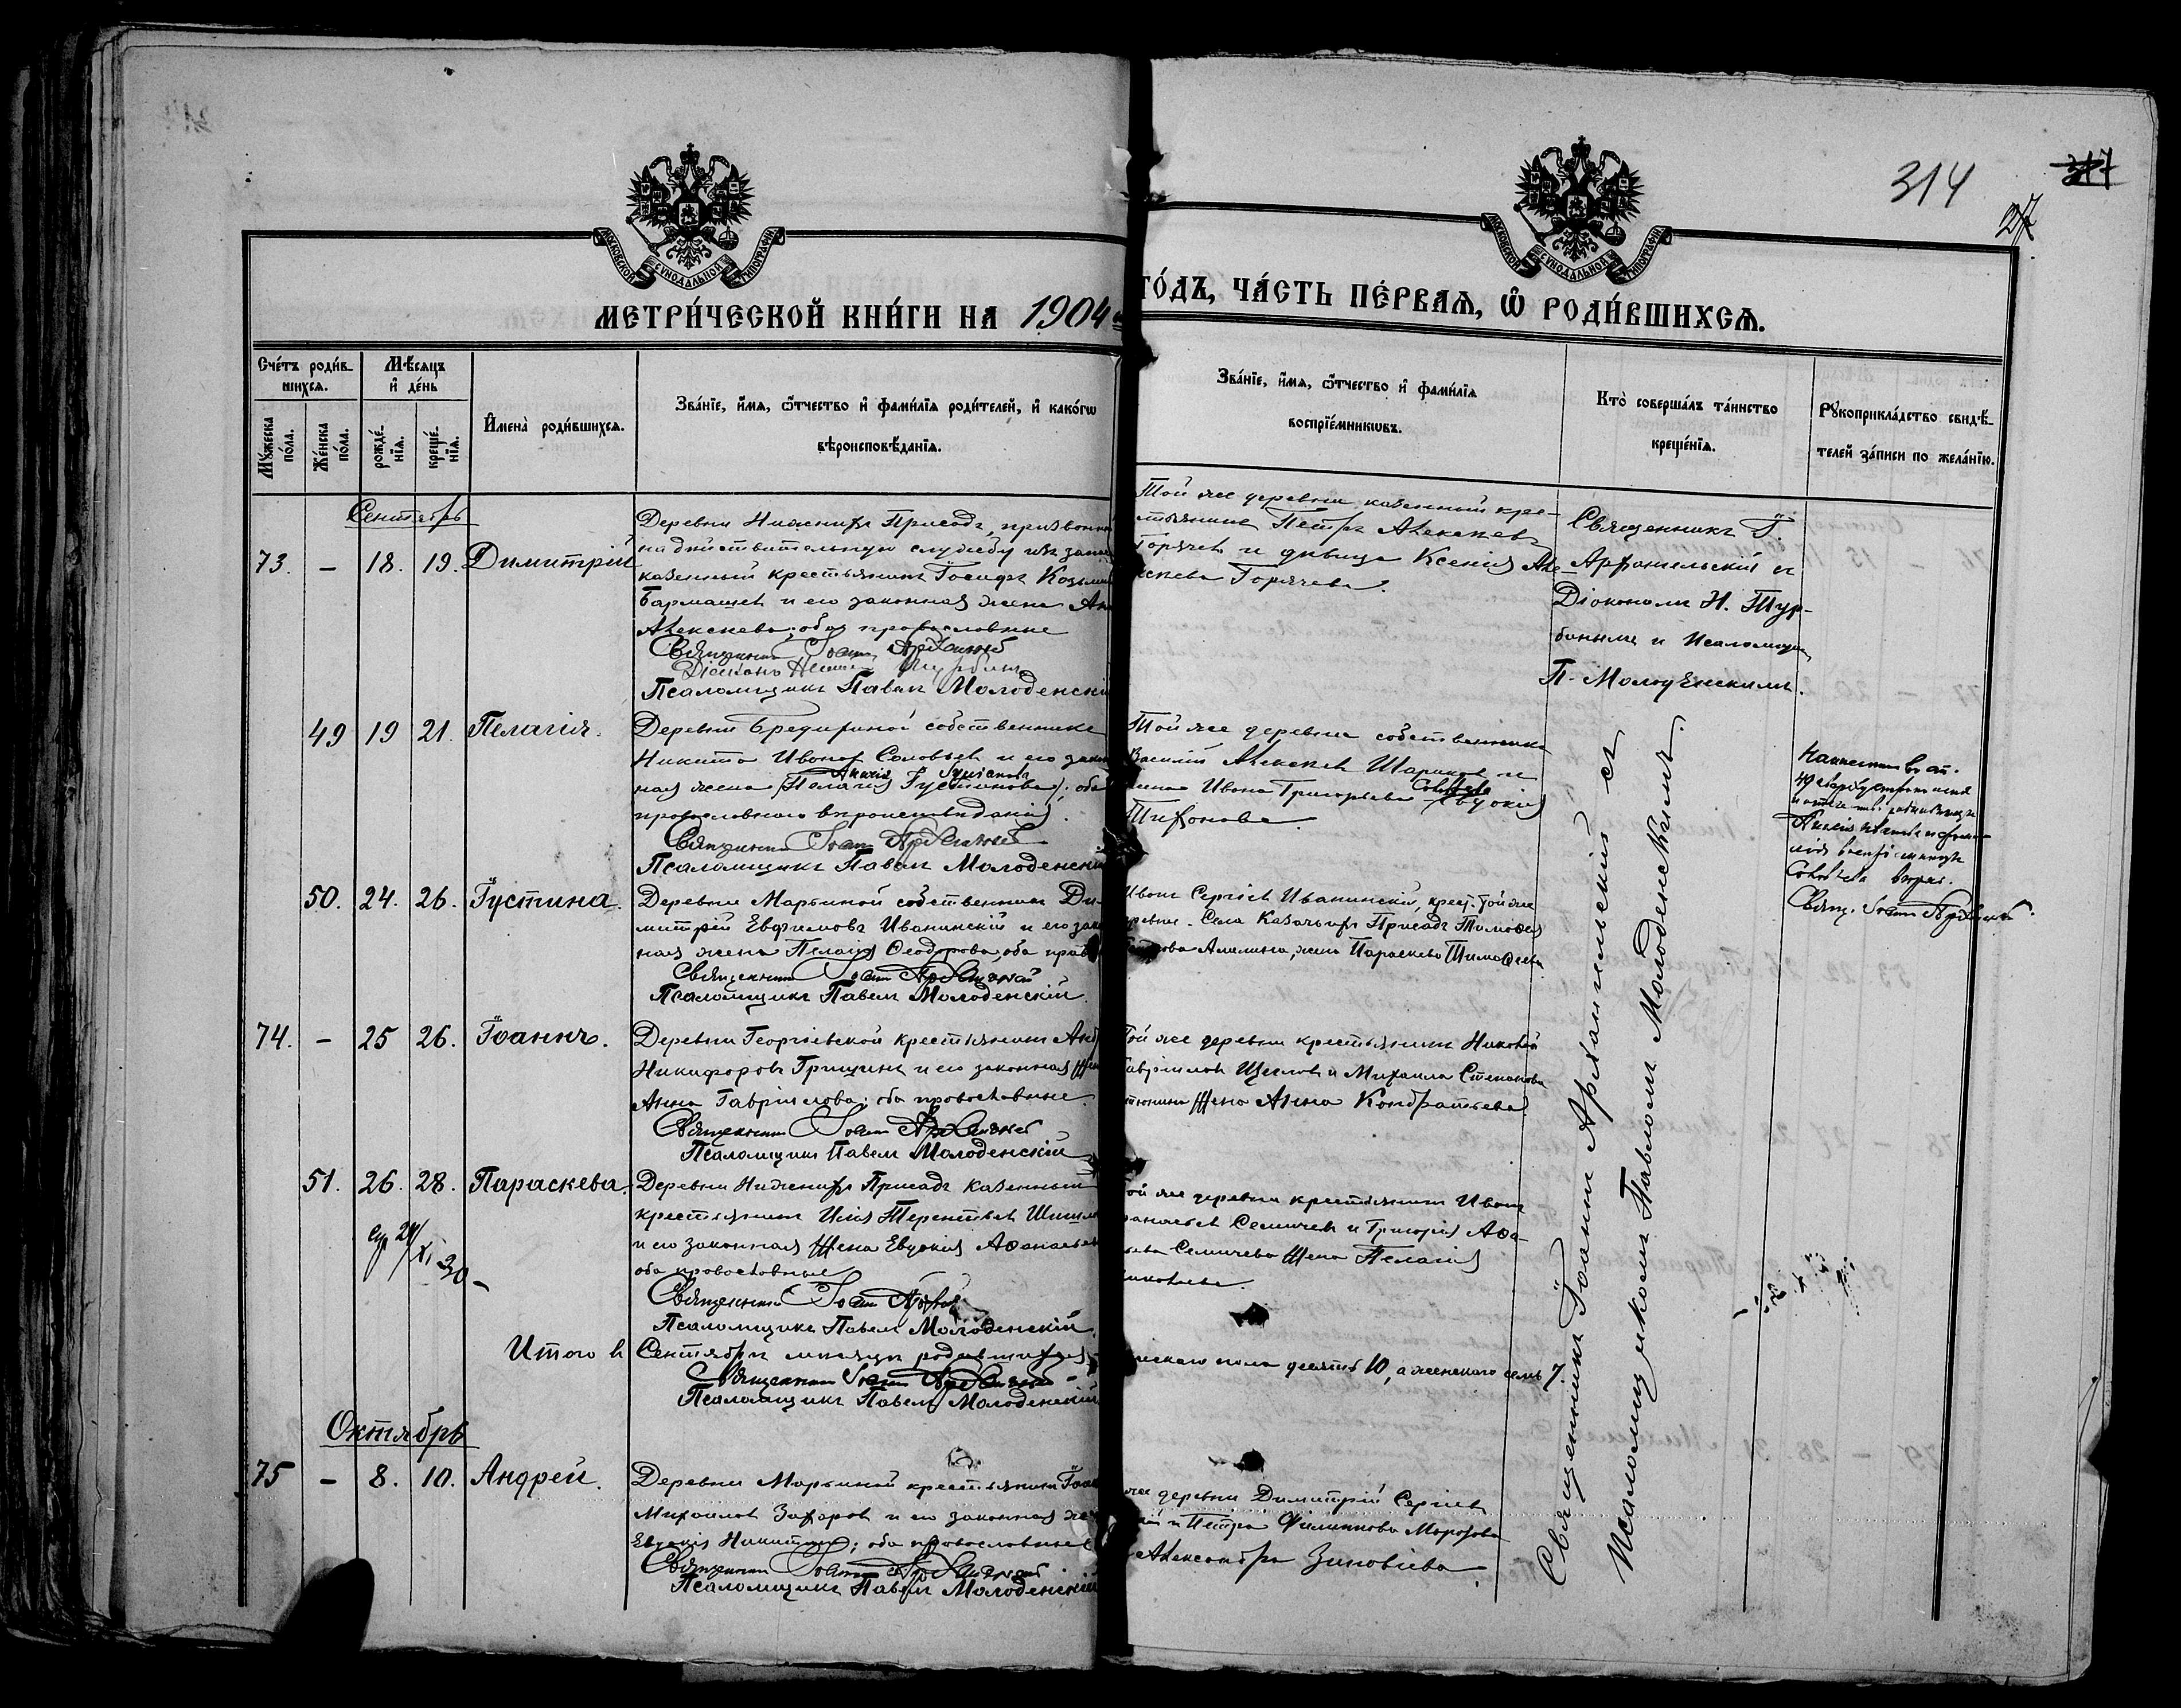 314
317
МОСКОВСКОЙ СѴНОДАЛЬНОЙ ТИПОГРАФІИ
МОСКОВСКОЙ СѴНОДАЛЬНОЙ ТИПОГРАФІИ
МЕТРИ́ЧЕСКОЙ КНИ́ГИ НА 1904
ГО́ДЪ, ЧА́СТЬ ПЕ́РВАѦ, Ѡ҆ РОДИ́ВШИХСѦ.
Сче́тъ роди́в-
шихсѧ.
Мѣ́сѧцъ
и҆ де́нь
Мꙋ́жеска
по́ла.
Же́нска
по́ла.
рожде́-
нїѧ.
креще́-
нїѧ.
И҆мена̀ роди́вшихсѧ.
Зва́нїе, и҆́мѧ, ѻ҆́тчество и҆ фами́лїѧ роди́телей, и҆ како́гѡ
вѣроисповѣ́данїѧ.
Зва́нїе, и҆́мѧ, ѻ҆́тчество и҆ фами́лїѧ
воспрїе́мникѡвъ.
Кто̀ соверша́лъ та́инство
креще́нїѧ.
Рꙋкоприкла́дство свидѣ́-
телей за́писи по жела́нїю.
Сентябрь
73. – 18. 19. Димитрій
Деревни Нижнихъ Присадъ, призванн
на дѣйствительную службу изъ запа
казенный крестьянинъ Іосифъ Козьмин
Бармашевъ и его законная жена Ан
Алексѣева; оба православные
Священникъ Іоаннъ Архангельскій
Діаконъ Турбинъ
Псаломщикъ Павелъ Молоденскій
Той же деревни казенный кре-
стьянинъ Петръ Алексѣевъ
Горячевъ и дѣвица Ксенія Але-
ксѣева Горячева.
Священникъ І.
Архангельскій съ
Діакономъ Н. Тур-
бинымъ и Псаломщик
П. Молоденскимъ.
49 19 21. Пелагія.
Деревни Бредихиной собственникъ
Никита Ивановъ Соловьевъ и его закон
Акилина
ная жена (Пелагія Густинова); оба
православнаго вѣроисповѣданія.
Священникъ Іоаннъ Архангельскій
Псаломщикъ Павелъ Молоденскій
Той же деревни собственникъ
Василій Алексѣевъ Шариковъ и
жена Ивана Григорьева Евдокія
Тихонова.
Свящ. Іоаннъ Архангельскій.
50. 24. 26. Іустина.
Деревни Марьиной собственникъ Ди-
митрій Евфимовъ Иванинскій и его закон
ная жена Пелагія Ѳеодорова, оба прав
Священникъ Іоаннъ Архангельскій
Псаломщикъ Павелъ Молоденскій.
Иванъ Сергѣевъ Иванинскій, крест. той же
деревни. Села Казачьихъ Присадъ Тимоѳея
Петрова Амелина, жена Параскева Тимоѳеева
74. – 25 26. Іоаннъ.
Деревни Георгіевской крестьянинъ Анд
Никифоровъ Гришинъ и его законная жен
Анна Гавріилова; оба православные.
Священникъ Іоаннъ Архангельскій
Псаломщикъ Павелъ Молоденскій
Той же деревни крестьянинъ Николай
Гавріиловъ Щегловъ и Михаила Степанова
жена Анна Кондратьева
51. 26. 28. Параскева.
Деревни Нижнихъ Присадъ казенный
крестьянинъ Илія Терентьевъ Шиш
и его законная жена Евдокія Аѳанасьев
оба православные
Священникъ Іоаннъ
Псаломщикъ Павелъ Молоденскій.
той же деревни крестьянинъ Иванъ
Семичевъ и Григорія Аѳа-
сьева Семичева жена Пелагія
Николаева.
Итого въ Сентябрѣ мѣсяцѣ родившихся
мужескаго пола десять 10, а женскаго семь 7.
Священникъ Іоаннъ Архангельскій
Псаломщикъ Павелъ Молоденскій
Октябрь
75 – 8. 10. Андрей.
Деревни Марьиной крестьянинъ Іоан
Михаиловъ Захаровъ и его законная жен
Евдокія Никитина; оба православные
Священникъ Іоаннъ Архангельскій
Псаломщикъ Павелъ Молоденскій
же деревни Димитрій Сергѣевъ
и Петра Филиппова Морозова
Александра Зиновіева.
Священникъ Іоаннъ Архангельскій съ
Псаломщикомъ Павломъ Молоденскимъ.